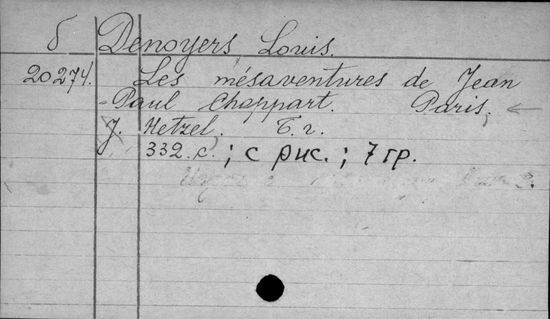 б Denoyers, Louis.
20274. Les mésaventures de Jean
-Paul Choppart. Paris,
J. Hetzel. Б.г.
332 с.; с рис.; 7 гр.